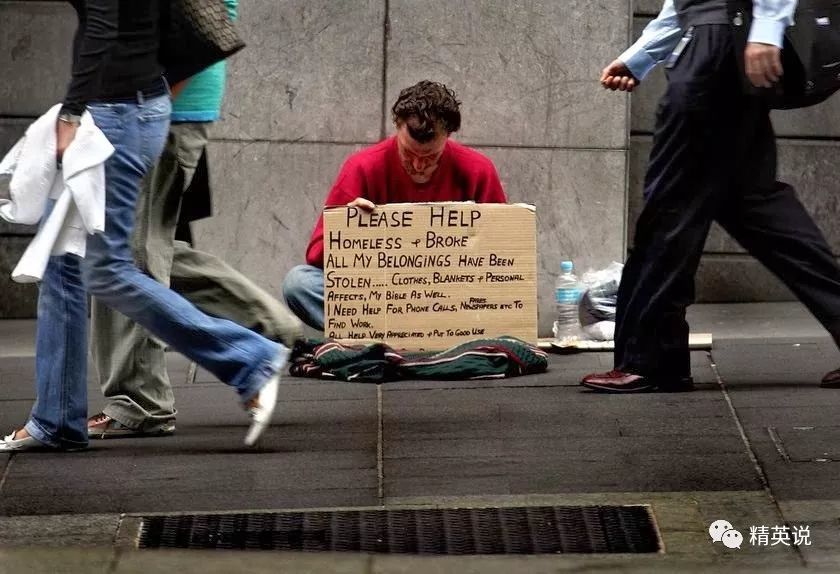 PLEASE HELP
HOMELESS + BROKE
ALL MY BELONGINGS HAVE BEEN
STOLEN..... CLOTHES, BLANKETS + PERSONAL
AFFECTS, MY BIBLE AS WELL.
I NEED HELP FOR PHONE CALLS, PAPER NEWSPAPERS ETC TO
FIND WORK.
ALL HELP VERY APPRECIATED + PUT TO GOOD USE
精英说